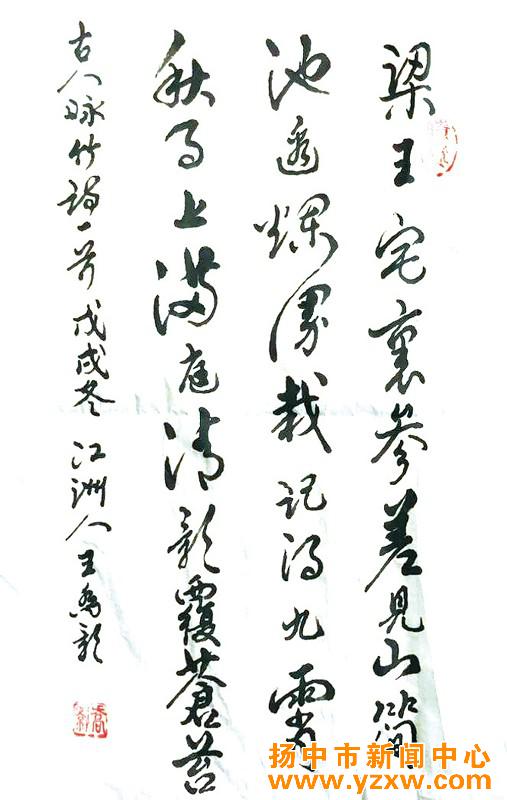 梁王宅裏參差見山簡
池邊爛漫栽記得九霄
秋月上滿庭清影覆蒼苔
古人咏竹詩一首戊戌冬 江洲人王
扬中市新闻中心
www.yzxw.com